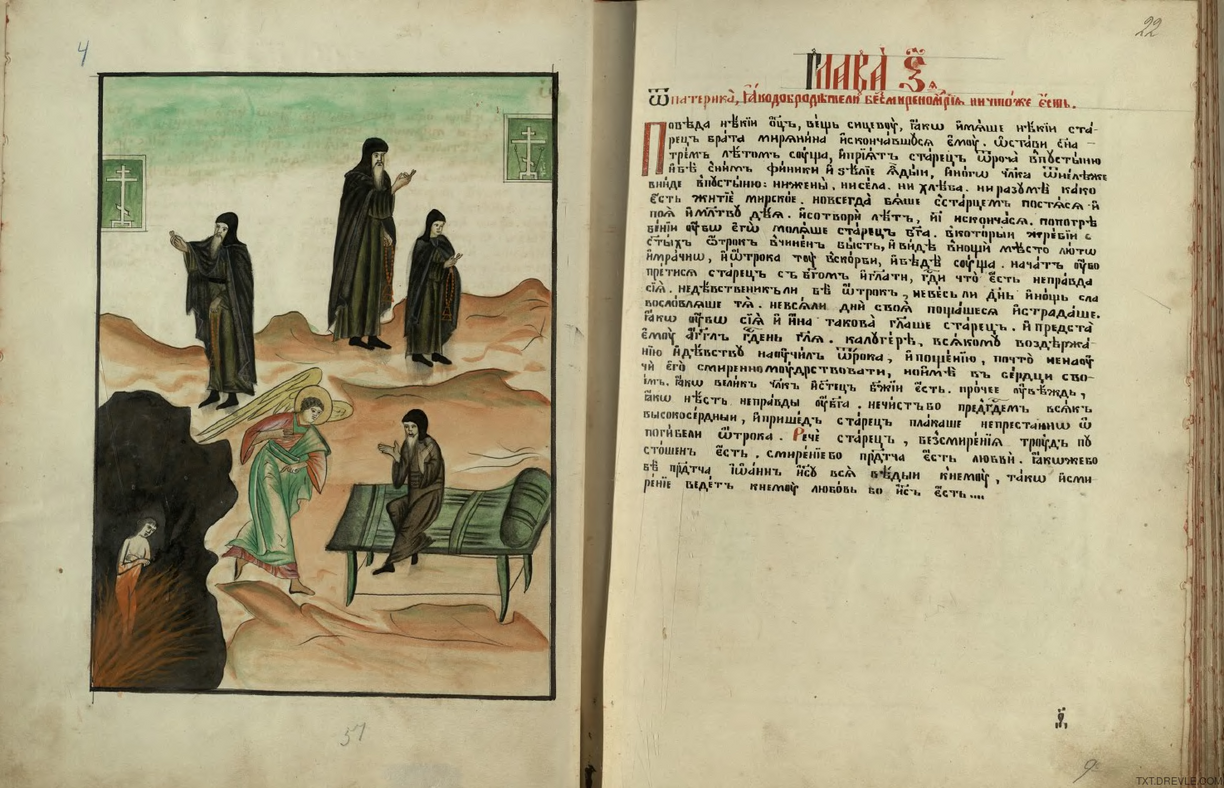 4
57
22
Глава ѕ҃.я
Ѿ патерика, ꙗ҆́кѡ добродѣтели без̾ смиреномр҃їѧ ничто́же є҆́сть.
Повѣда нѣ́кїи ѻ҆ц҃ъ, вещь сицевꙋ, ꙗ҆́кѡ и҆мѧше нѣ́кїи ста-
рецъ брата мирѧнина и҆скончавшꙋсѧ є҆мꙋ̀. ѡ҆стави сн҃а –
трем̾ лѣтом̾ сꙋща, и҆прїѧ́тъ старецъ ѿроча в̾пꙋстыню
и҆бѣ̀ с̾ним̾ финики и҆ѕе́лїе ꙗ҆дыи, и҆ного чл҃ка
вни́де в̾пꙋстыню: нижены̀, ни села. ни хлѣба. ни разꙋмѣ како
є҆́сть житїѐ мирское. но всегда бѧше с̾старцемъ постѧсѧ и҆
поѧ̀ и҆ мл҃твꙋ дѣѧ. и҆сотвори лѣтъ, и҆скончасѧ. попотре
бенїи ᲂу҆́бѡ є҆гѡ̀ молѧше старецъ бг҃а. в̾которыи жребїи с
ст҃ыхъ ѿрокъ в̾чиненъ бысть, и҆ видѣ в̾нощи мѣсто лютѡ
и҆мрачнѡ, и҆ ѿрока тꙋ̀ в̾скорби, и҆ бѣдѣ̀ сꙋща. начатъ ᲂу҆́бо
прѣтисѧ старецъ съ бг҃омъ и҆ гл҃ати, гд҃и что̀ є҆́сть неправда
сїѧ̀. не дѣвственикъ ли бѣ̀ ѿтрокъ, не весь ли дн҃ь и҆нощь сла
вословлѧше тѧ̀. не всѧ ли дни̑ своѧ̀ пощашесѧ и҆страдаше.
ꙗ҆́кѡ ᲂу҆́бѡ сїѧ̀ и҆ и҆́на такова̀ гл҃аше старецъ. и҆ предста
є҆мꙋ̀ а҆́гг҃лъ гд҃ень гл҃ѧ. калꙋгере, всѧкомꙋ воздержа
нїю и҆ дѣвствꙋ наꙋчилъ ѿрока, и҆ пощенїю, почто̀ ненаꙋ
чи є҆го̀ смиренномꙋдрствовати, и҆ имѣѧ въ сердци сво
є҆м̾. ꙗ҆́кѡ великъ чл҃къ и҆стецъ бж҃їи є҆́сть. прочее ᲂу҆вѣждь,
ꙗ҆́кѡ нѣсть неправды ᲂу҆ бг҃а. нечистъ бо пред̾ гд҃емъ всѧкъ
высокосердныи, и҆ пришедъ старецъ плакаше непрестаннѡ ѡ҆
погибели ѿтрока. Речѐ старецъ, без̾смиренїѧ трꙋдъ пꙋ
стошенъ є҆́сть, смиренїе бо прд҃тча є҆́сть любви. ꙗ҆́коже бо
бѣ̀ прд҃тча і҆ѡ҆аннъ і҆с҃ꙋ всѧ̀ в̾ѣдыи к̾немꙋ̀, такѡ и҆ сми
ренїе ведетъ к̾немꙋ̀ любовь бо і҆с҃ъ є҆́сть....
9
TXT.DREVLE.COM